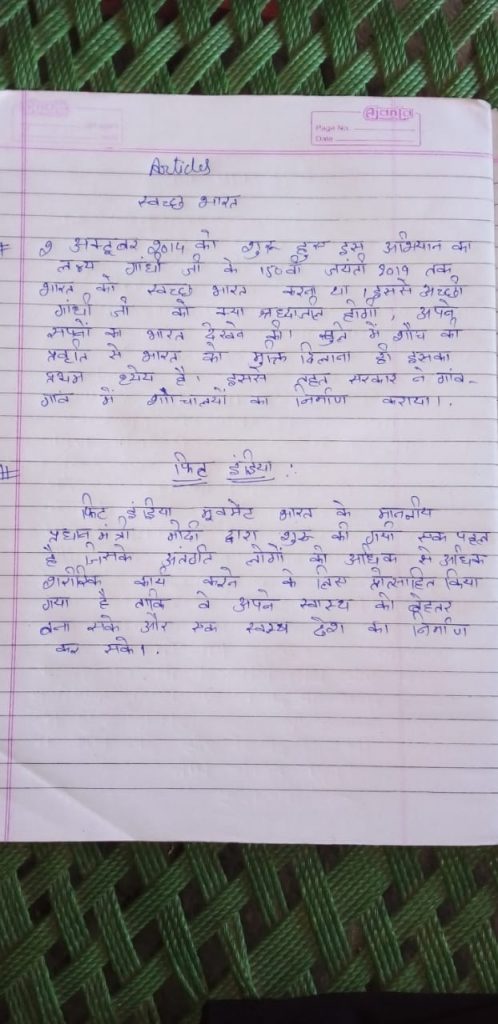 Ajanta
Page No.
Date
Articles
स्वच्छ भारत
# 2 अक्टूबर 2014 को शुरू हुए इस अभियान का
लक्ष्य गांधी जी के 150वी जयंती 2019 तक
भारत को स्वच्छ भारत करना था। इससे अच्छी
गांधी जी को क्या श्रध्दाजलि होगी, अपने
सपनों का भारत देखने की। खुले में शौच की
प्रवृति से भारत को मुक्ति दिलाना ही इसका
प्रथम ध्येय है। इसके तहत सरकार ने गांव-
गांव में शौचालयों का निर्माण कराया।.
# फिट इंडिया :
फिट इंडिया मूवमेंट भारत के माननीय
प्रधानमंत्री मोदी द्वारा शुरू की गयी एक पहल
है जिसके अंतर्गत लोगों को अधिक से अधिक
शारीरिक कार्य करने के लिए प्रोत्साहित किया
गया है ताकि वे अपने स्वास्थ्य को बेहतर
बना सके और एक स्वस्थ देश का निर्माण
कर सके।.